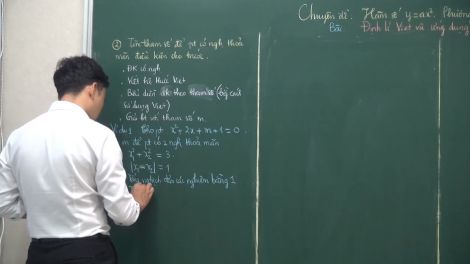 Chuyên đề. Hàm số y=ax². Phương
Bài Định lí Viet và ứng dụng
② Tìm tham số để pt có nghiệm thoả
mãn điều kiện cho trước.
. ĐK có nghiệm
. Viết hệ thức Viet
. Biểu diễn đk theo tham số
sử dụng Viet)
. Giải bt với tham số m.
Ví dụ 1 Cho pt x²+2x+m+1=0.
m để pt có 2 nghiệm thoả mãn
x₁²+x₂² = 3.
|x₁-x₂| = 1
nghịch đảo các nghiệm bằng 1